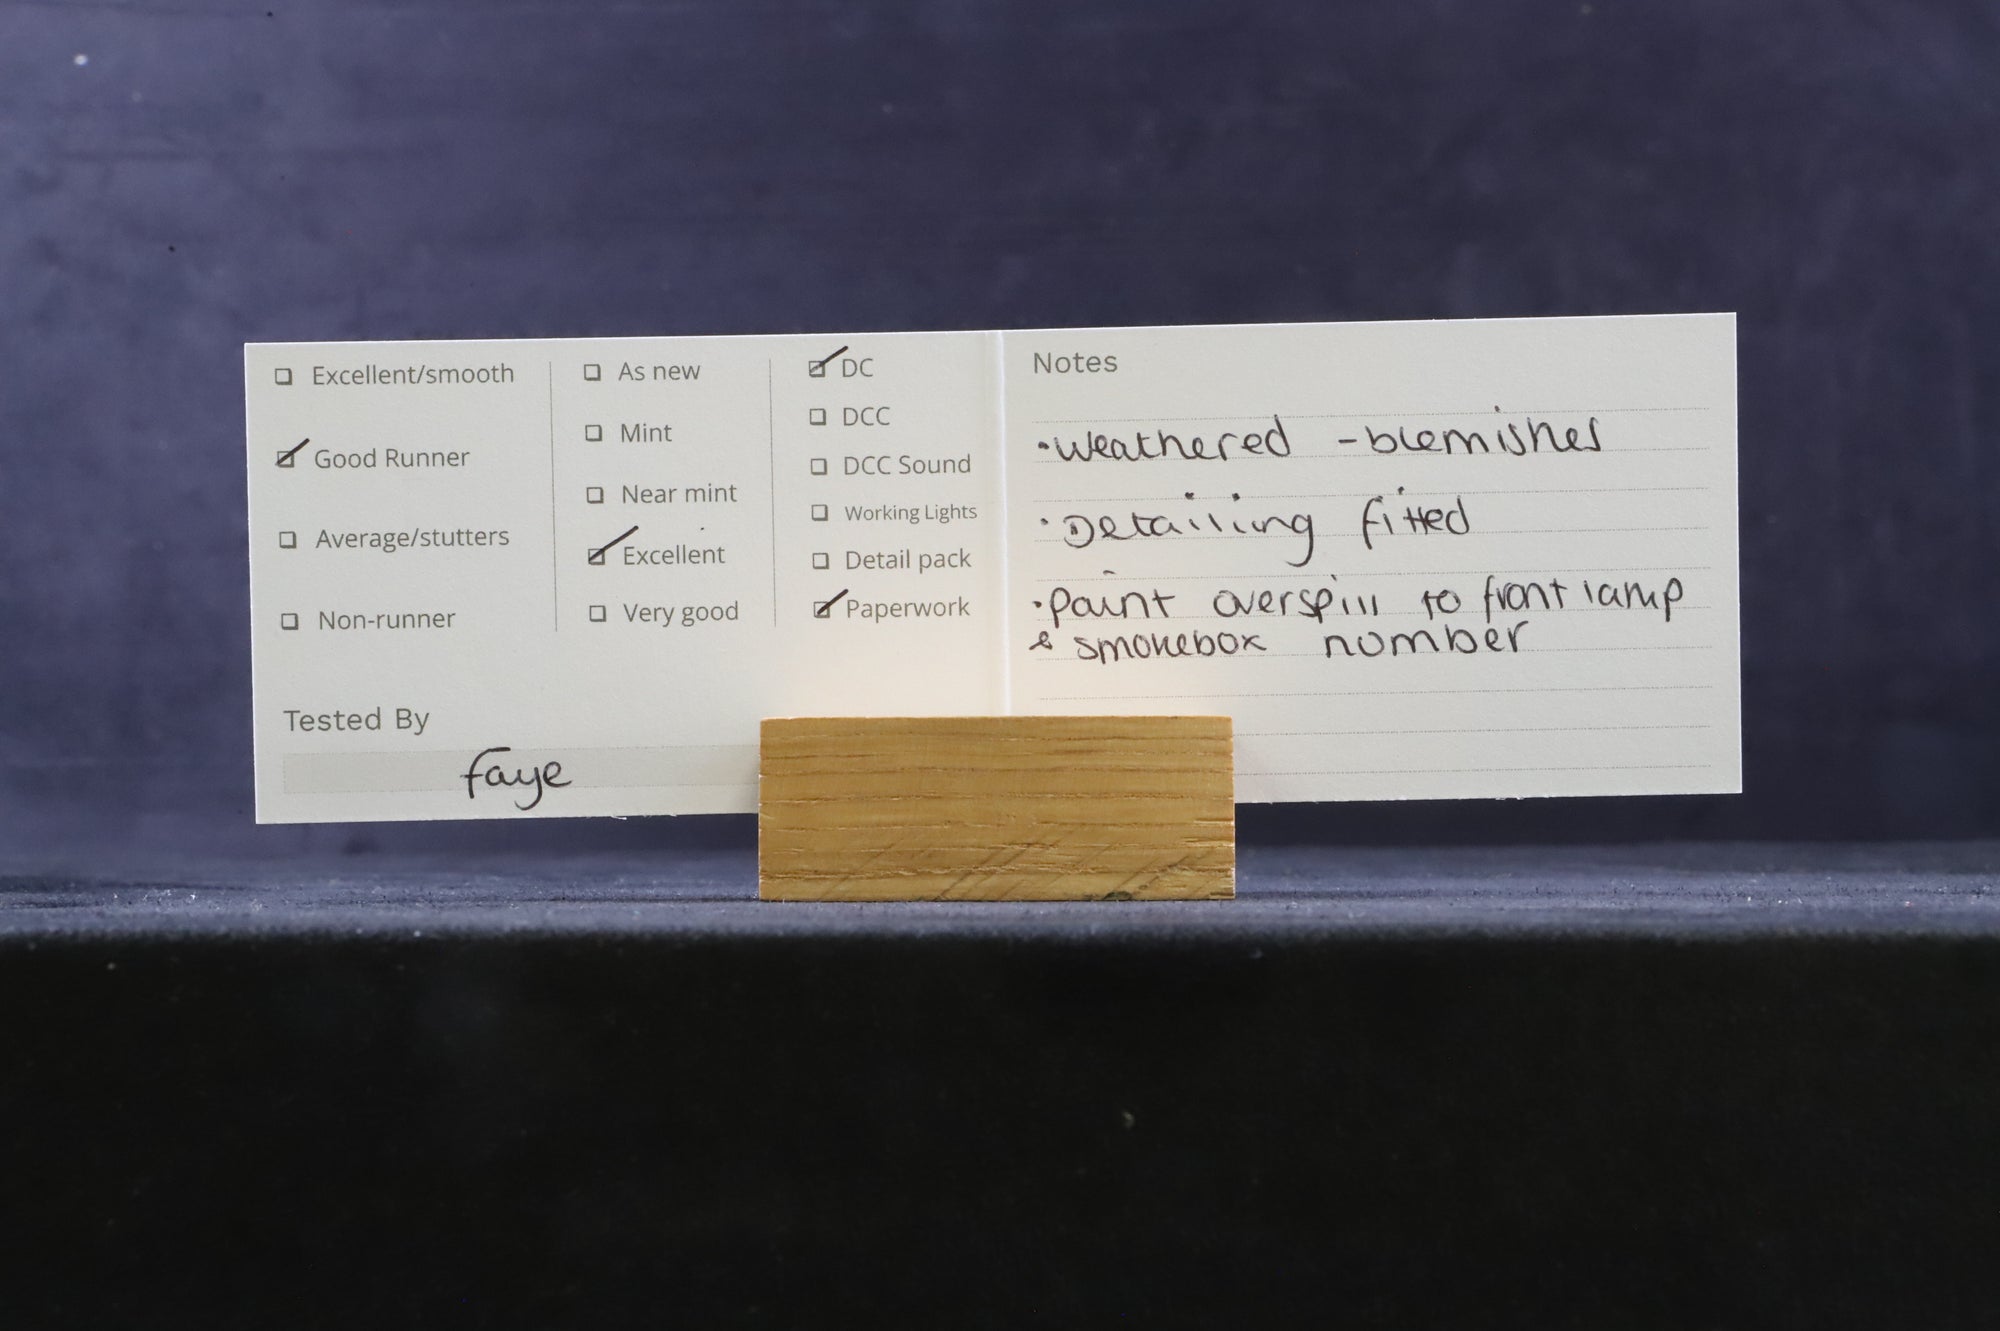 ☐ Excellent/smooth
☑ Good Runner
☐ Average/stutters
☐ Non-runner
☐ As new
☐ Mint
☐ Near mint
☑ Excellent
☐ Very good
☑ DC
☐ DCC
☐ DCC Sound
☐ Working Lights
☐ Detail pack
☑ Paperwork
Tested By
faye
Notes
• weathered - blemishes
• Detailing fitted
• paint overspill to front lamp
& smokebox number